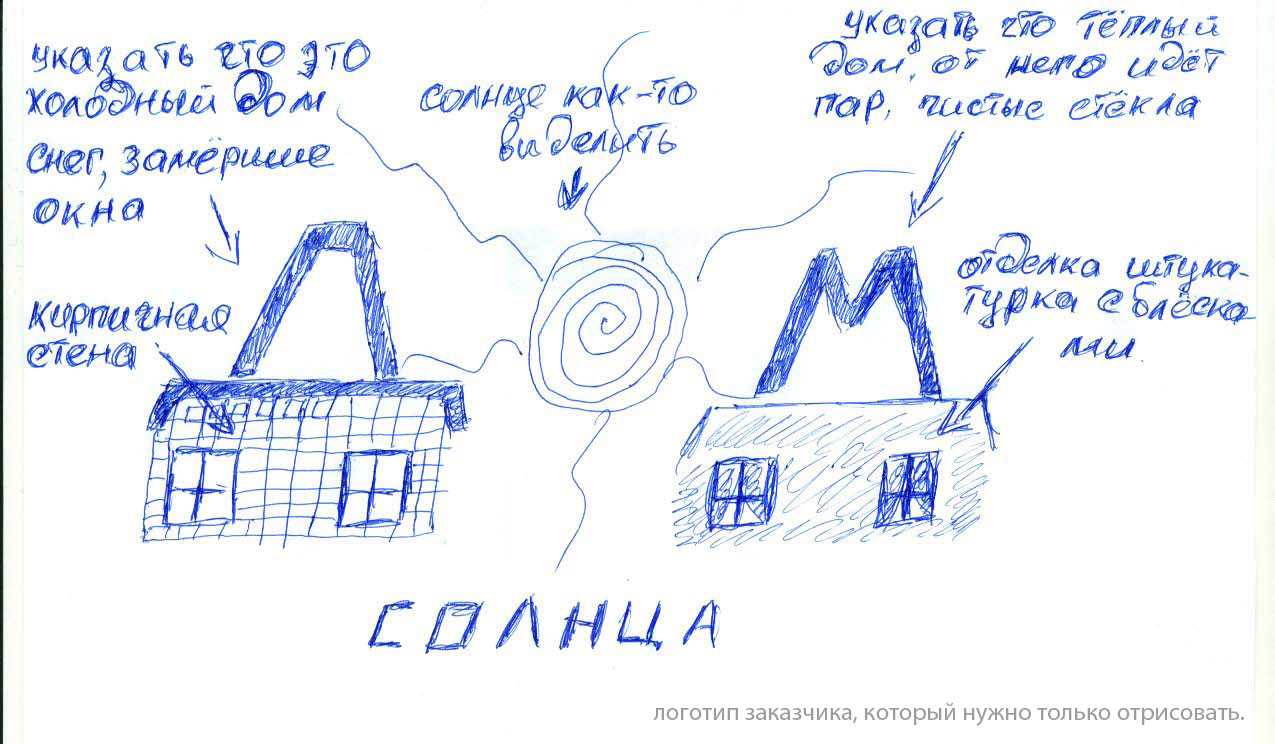 указать что это
холодный дом
снег, замёрзшие
окна
кирпичная
стена
солнце как-то
выделить
указать что тёплый
дом, от него идёт
пар, чистые стёкла
отделка штука-
турка с блёска
ми
Д М
СОЛНЦА
логотип заказчика, который нужно только отрисовать.